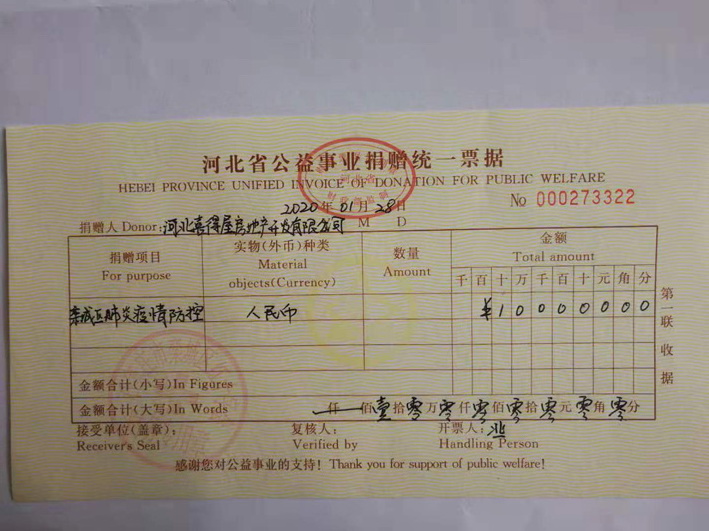 河北省公益事业捐赠统一票据
HEBEI PROVINCE UNIFIED INVOICE OF DONATION FOR PUBLIC WELFARE
2020年01月28日 No 000273322
捐赠人 Donor:河北喜得屋房地产开发有限公司 M D
捐赠项目 实物(外币)种类 数量 金额
For purpose Material objects(Currency) Amount Total amount
千 百 十 万 千 百 十 元 角 分
栾城区肺炎疫情防控 人民币 ¥ 1 0 0 0 0 0 0 0
金额合计(小写)In Figures
金额合计(大写)In Words 仟 佰 壹 拾 零 万 零 仟 零 佰 零 拾 零 元 零 角 零 分
接受单位(盖章): 复核人: 开票人:
Receiver's Seal Verified by Handling Person
感谢您对公益事业的支持! Thank you for support of public welfare!
第一联收据